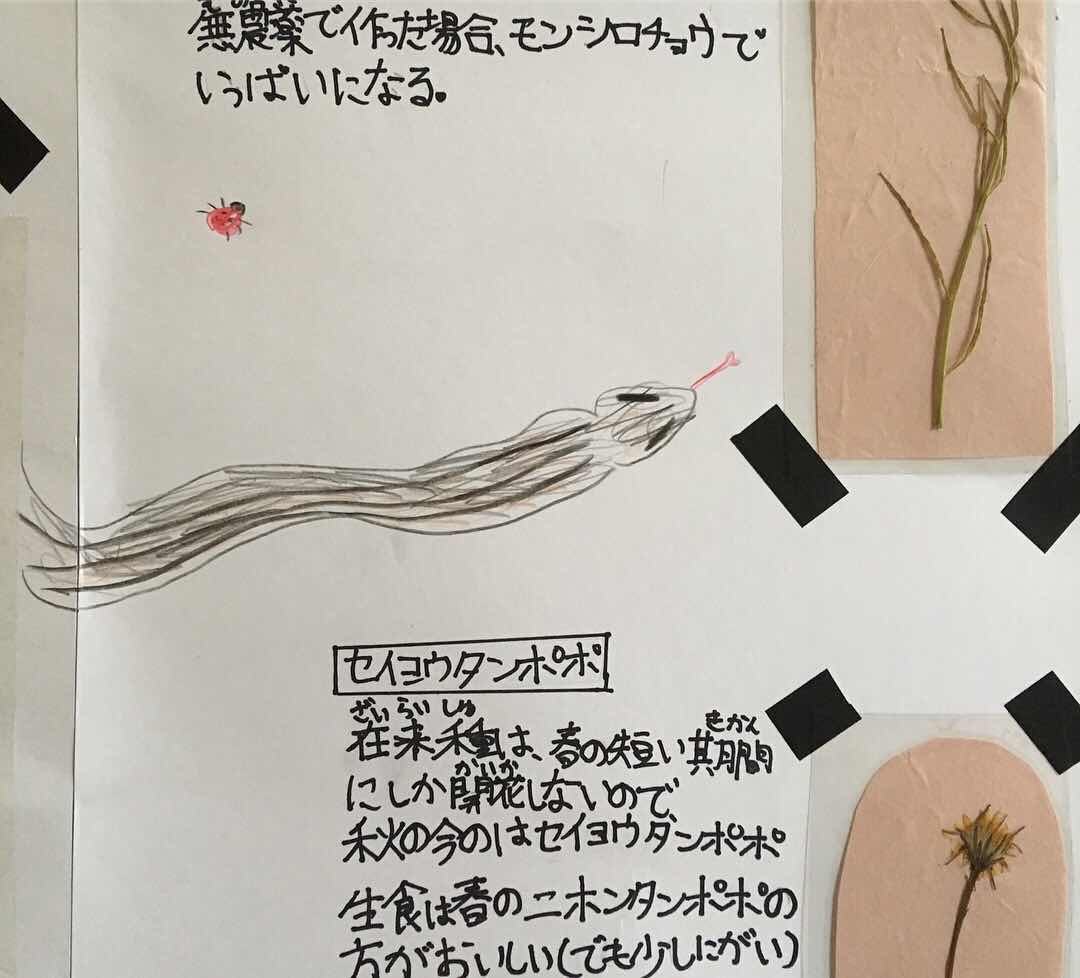 無農薬で作った場合、モンシロチョウで
いっぱいになる。
セイヨウタンポポ
ざいらいしゅ
在来種は、春の短い期間
きかん
かいか
にしか開花しないので
秋の今のはセイヨウダンポポ
生食は春のニホンタンポポの
方がおいしい(でも少しにがい)